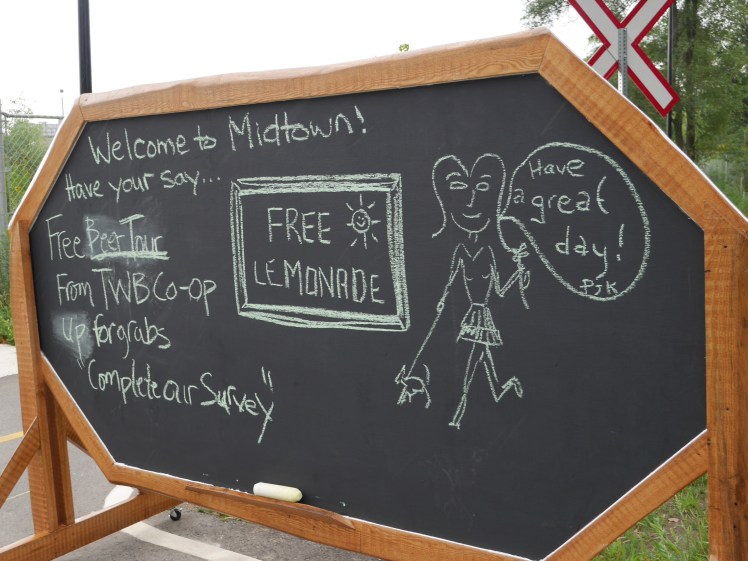 Welcome to Midtown!
Have your say...
Free Beer Tour
From TWB Co-op
up for grabs
"Complete our Survey"
FREE
LEMONADE
Have
a great
day!
PJK